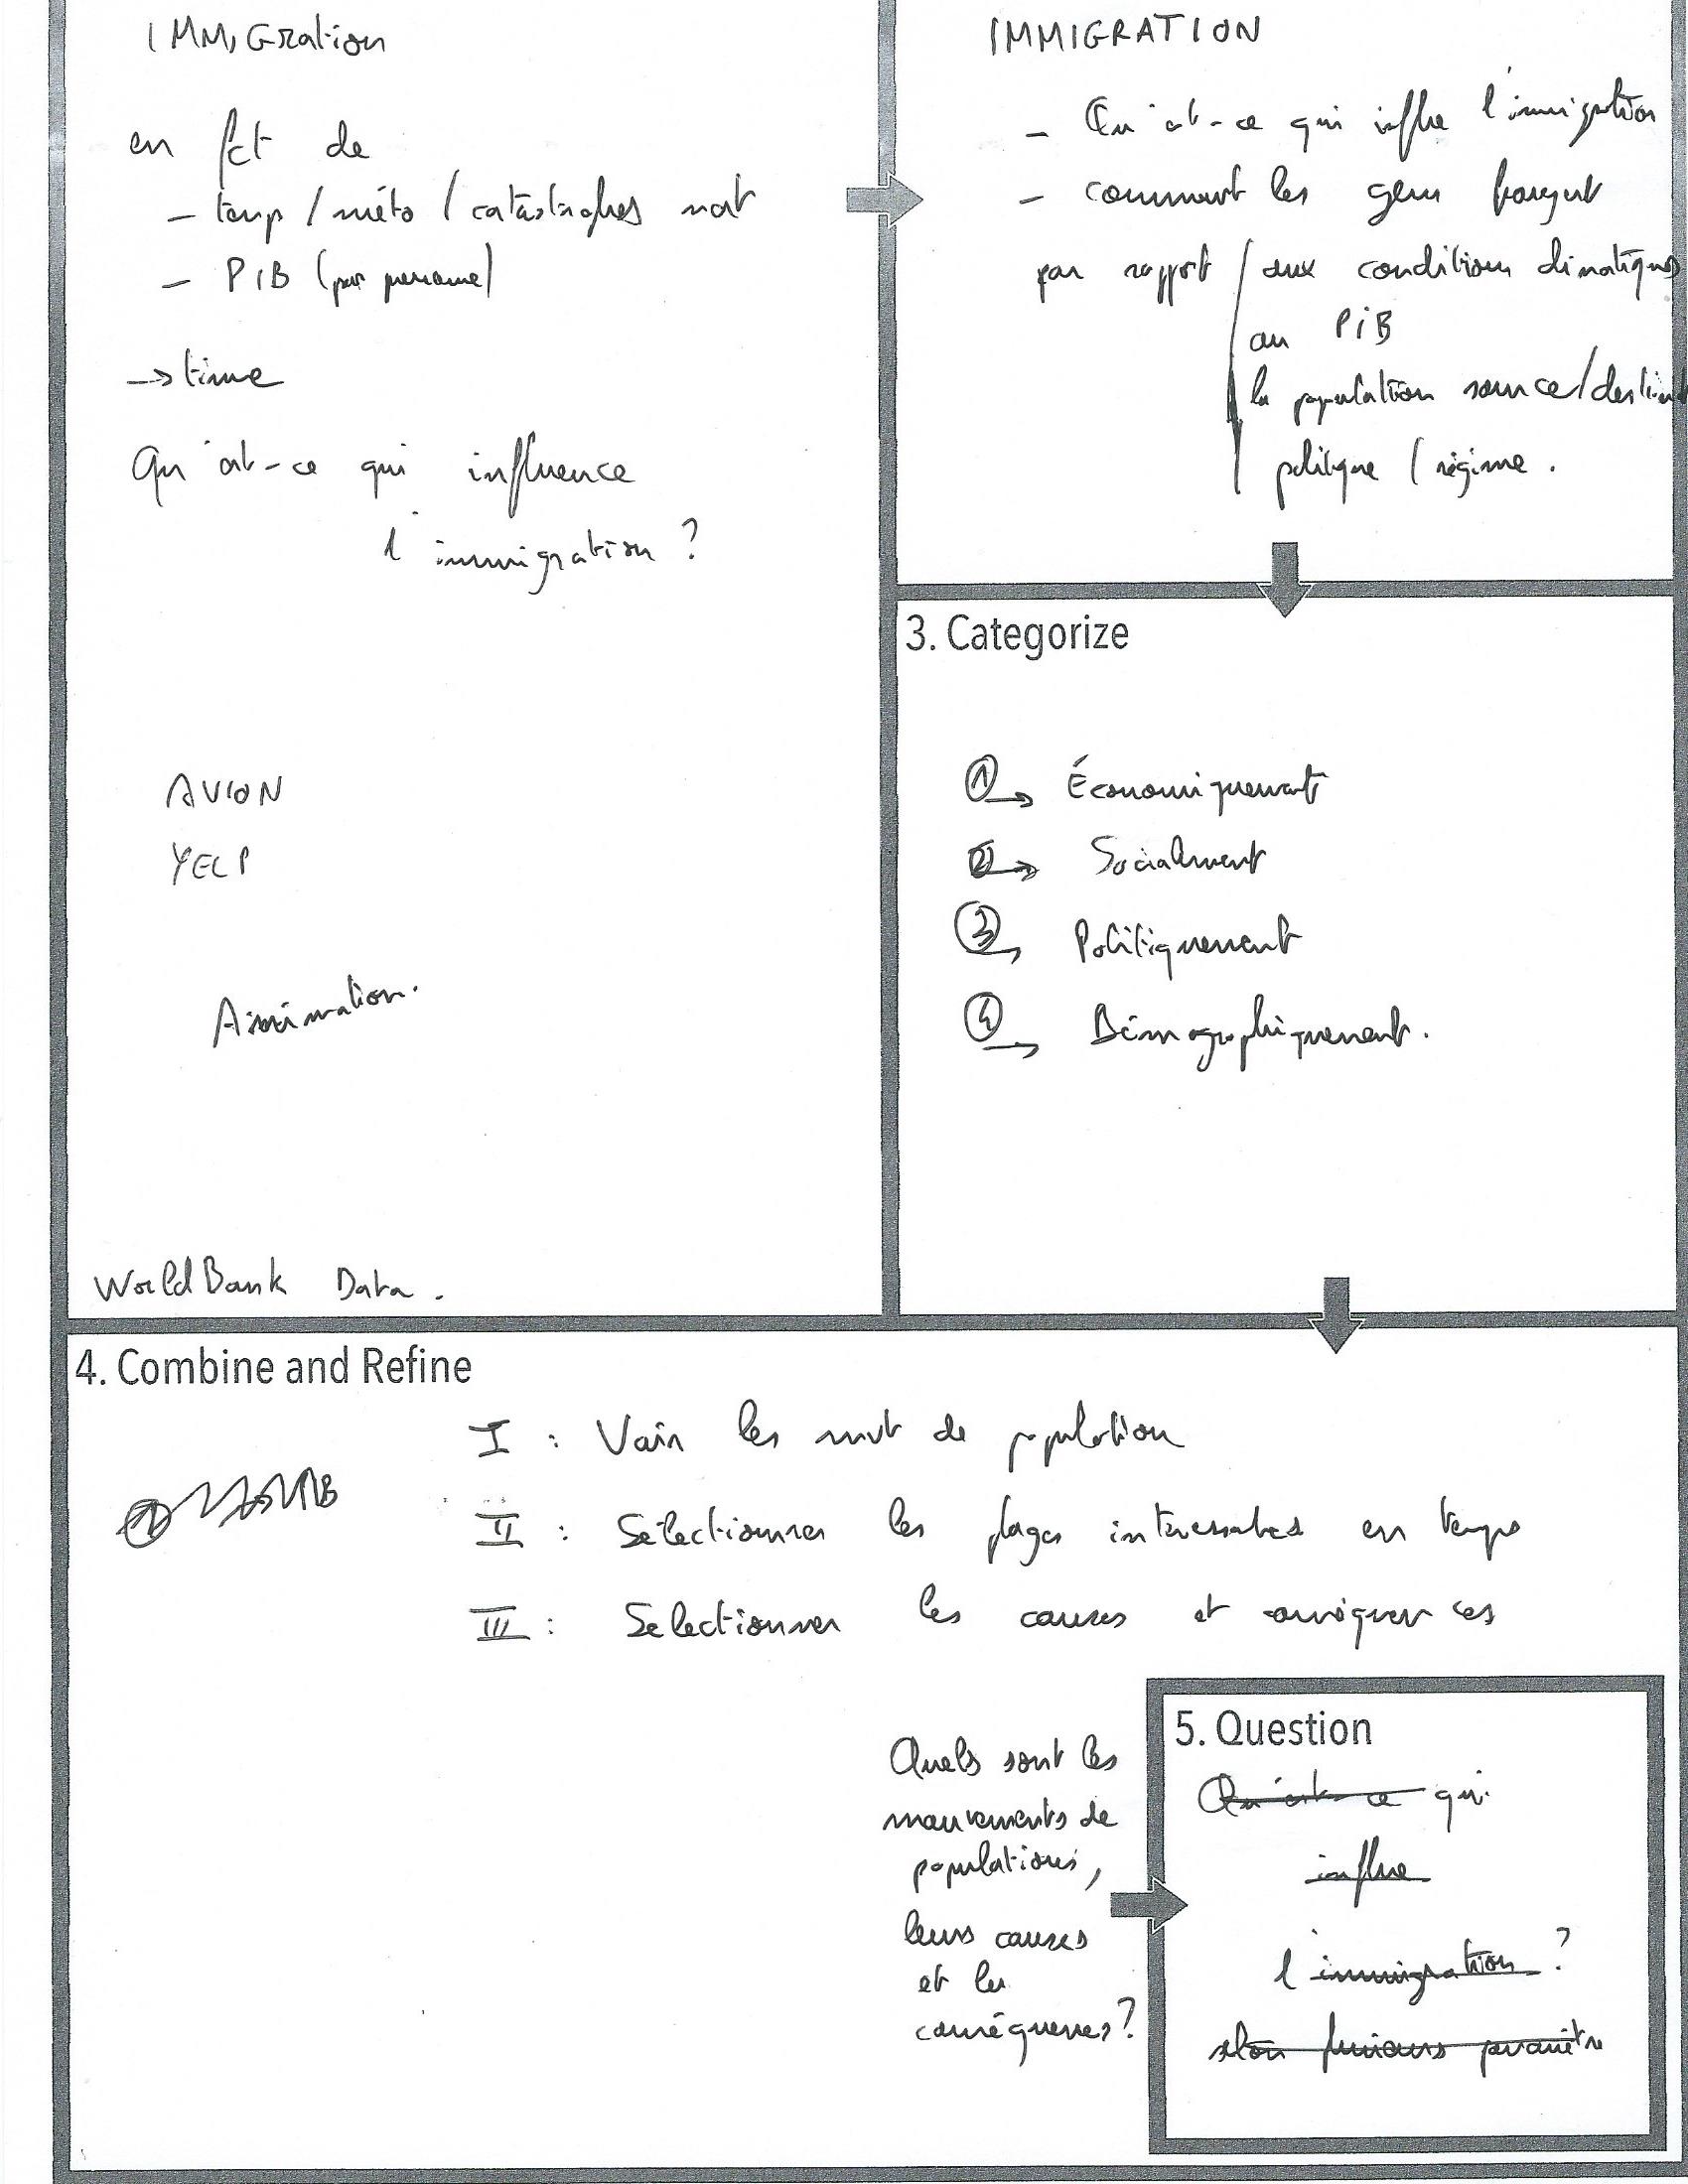 IMMIGration
en fct de
- temp / méto / catastrophes nat
- PIB (par personne)
→ time
Qu'est-ce qui influence
l'immigration ?
AVION
YELP
WorldBank Data.
IMMIGRATION
- Qu'est-ce qui influe l'immigration
- comment les gens
par rapport / aux conditions climatiques
au PiB
la population source/destina
politique / régime.
3. Categorize
1 → Économiquement
2 → Socialement
3 → Politiquement
4 → Démographiquement.
4. Combine and Refine
I : Voir les mvt de population
II : Sélectionner les plages interessantes en temps
III : Selectionner les causes et conséquences
Quels sont les
mouvements de
populations,
leurs causes
et les
conséquences?
5. Question
Qu'est-ce qui
influe
l'immigration ?
selon plusieurs paramètre